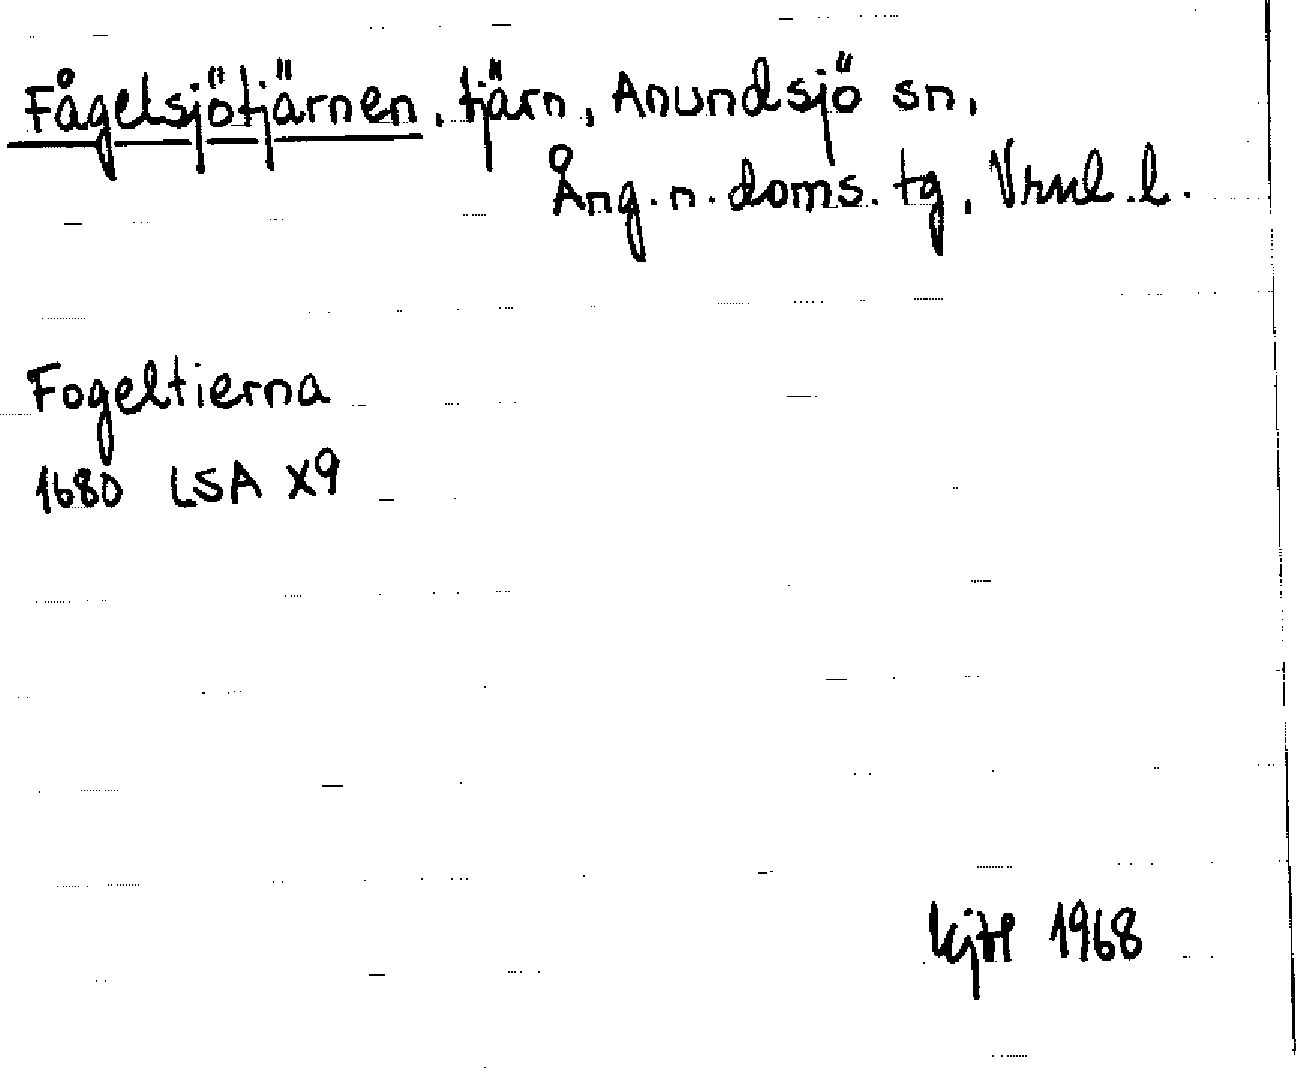 Fågelsjötjärnen, tjärn, Anundsjö sn,
Ång. n. doms. tg, Vrnl. l.
Fogeltierna
1680 LSA X9
1968